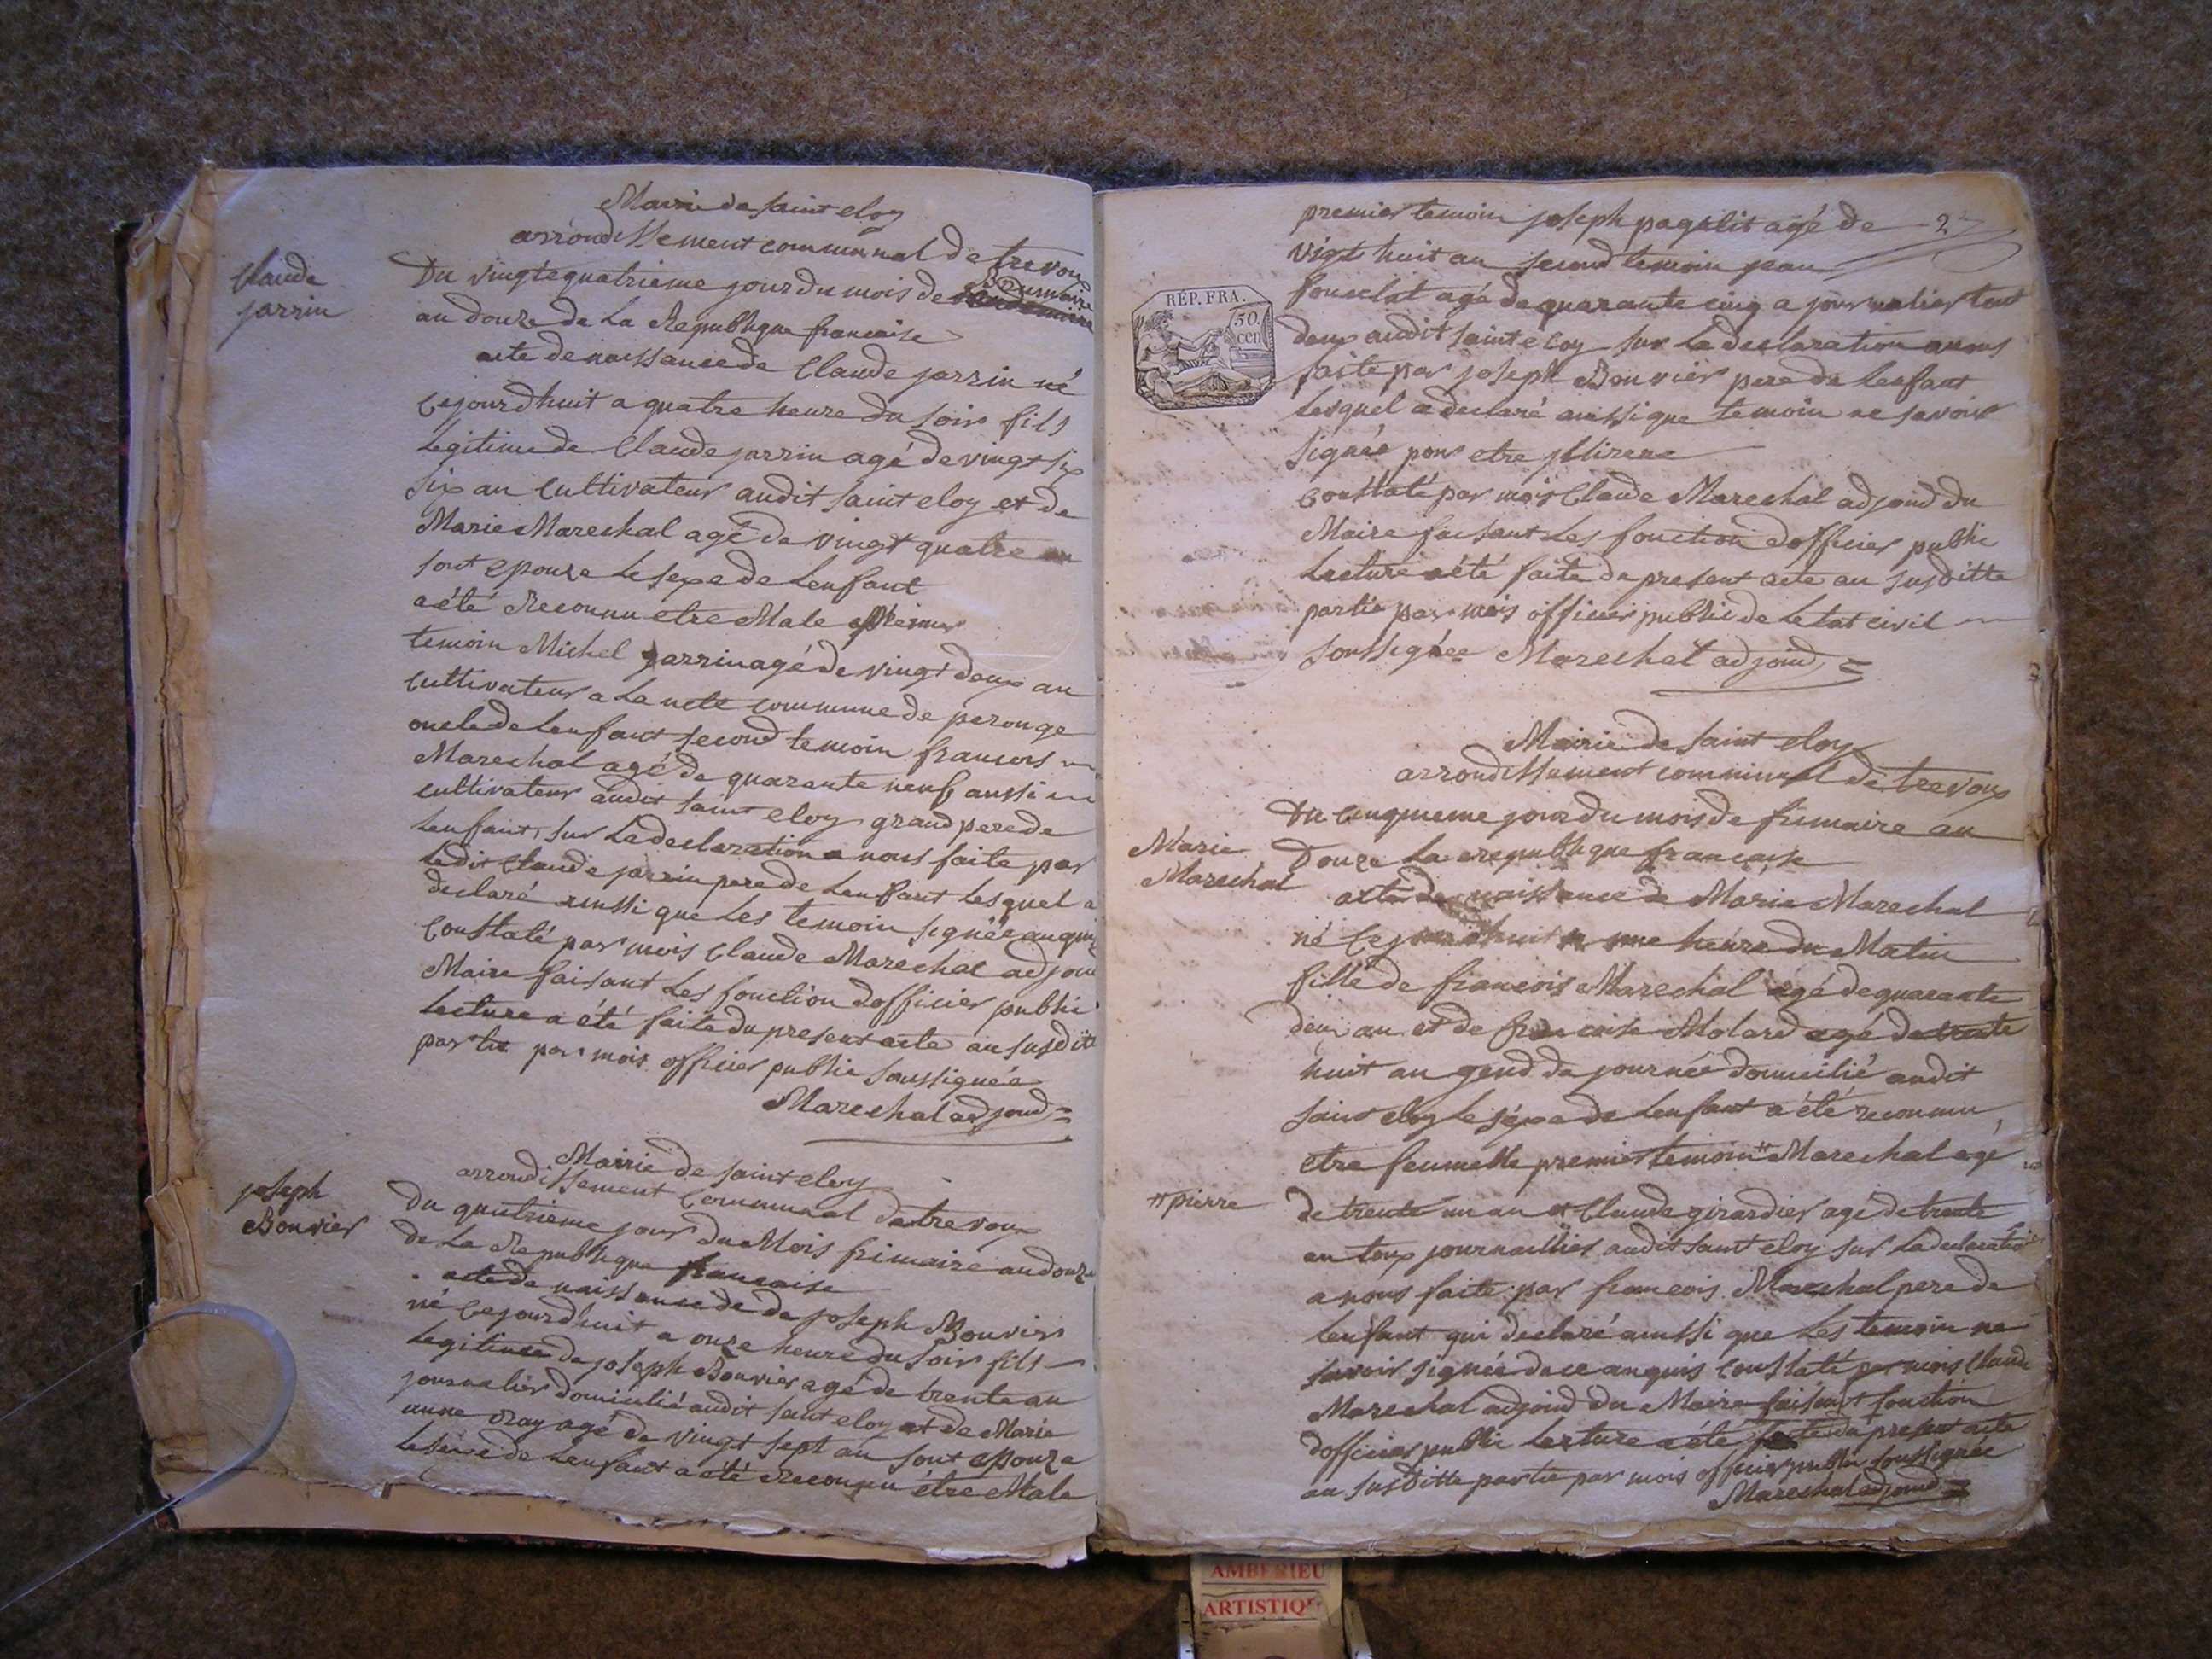 Mairie de saint eloy
arrondissement communal de trevou
Claude
jarrin
Du vingtequatrieme jour du mois de Brumaire
an douze de La Republique francaise
acte de naissance de Claude jarrin né
Cejourdhuit a quatre heure du soir fils
Legitime de Claude jarrin agé de vingt six
six an Cultivateur audit saint eloy et de
Marie Mareschal agé de vingt quatre an
sont epouze Le sexe de Lenfant
a été Reconnu etre Male premier
temoin Michel jarrin agé de vingt deux an
Cultivateur a La commune de perouge
oncle de Lenfant second temoin francois
Mareschal agé de quarante neuf aussi
cultivateur audit saint eloy grand pere de
Lenfant, sur La declaration a nous faite par
Ledit Claude jarrin pere de Lenfant Lesquel a
declaré aussi que Les temoin signée
Constaté par mois Claude Mareschal adjoud
Maire faisant Les fonction dofficier public
Lecture a été faite du present acte au susditte
partie par mois officier public soussignée
Mareschal adjoud
joseph
Bouvier
Mairie de saint eloy
arrondissement Communal de trevoux
Du quatrieme jour du Mois frimaire an douze
de La Republique francaise
acte de naissance de de joseph Bouvier
né Cejourdhuit a onze heure du soir fils
Legitime de joseph Bouvier agé de trente an
journalier domicilié audit saint eloy et de Marie
anne Ray agé de vingt sept an sont epouze
Le sexe de Lenfant a été reconnu étre Male
premier temoin joseph pagelit agé de 27
vigt huit an second temoin jean
agé de quarante cinq a journalier tout
deux audit saint eloy sur La declaration a nous
RÉP. FRA.
50.
cen
faite par joseph Bouvier pere de Lenfant
Lesquel a declaré aussi que temoin ne savoir
signée pour etre
Constaté par mois Claude Mareschal adjoud du
Maire faisant Les fonction dofficier public
Lecture a été faite du present acte au susditte
partie par mois officier public de Letat civil
soussignée Mareschal adjoud
Mairie de saint eloy
arrondissement communal de trevoux
Du cinquieme jour du mois de frimaire an
Marie
Mareschal
Douze La republique francaise
acte de naissance de Marie Mareschal
né Cejourdhuit a une heure du Matin
fille de francois Mareschal agé de quarante
deux an et de francoise Molard agé de trente
huit an gend de journée domicilié audit
saint eloy Le sexe de Lenfant a été reconnu
etre feumelle premier temoin # Mareschal agé
# pierre
de trente un an et Claude girardier agé de trente
an toux journaillier audit saint eloy sur La declaration
a nous faite par francois Mareschal pere de
Lenfant qui declaré aussi que Les temoin ne
savoir signée de ce anquis Constaté par mois Claude
Mareschal adjoud du Maire faisant fonction
dofficier public Lecture a été faite du present acte
au susditte partie par mois officier public soussignée
Mareschal adjoud
AMBERIEU
ARTISTIQ